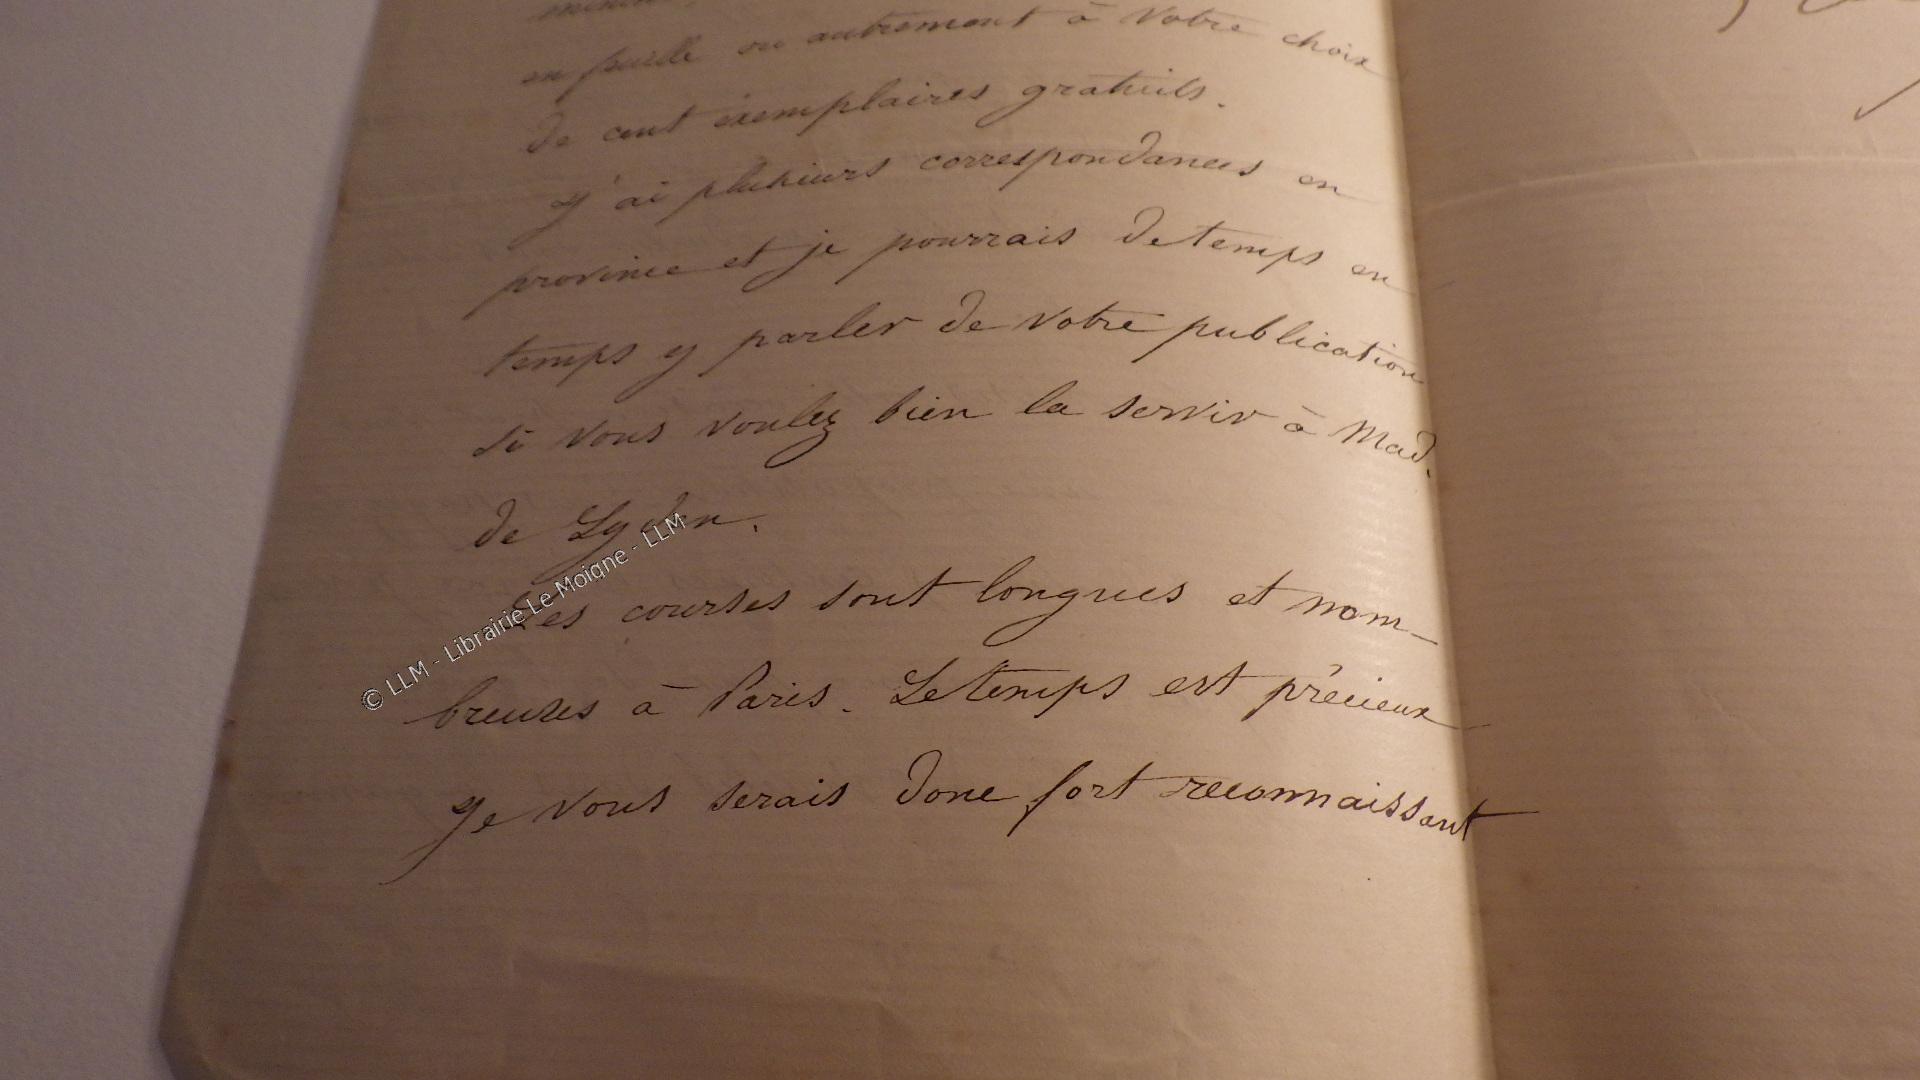 en feuille ou autrement à votre choix
de cent exemplaires gratuits.
J'ai plusieurs correspondances en
province et je pourrais de temps en
temps y parler de votre publication
si vous voulez bien la servir à Mad.
de Lyden.
Les courses sont longues et nom-
breuses à Paris. Le temps est précieux
Je vous serais donc fort reconnaissant
© LLM - Librairie Le Moigne - LLM